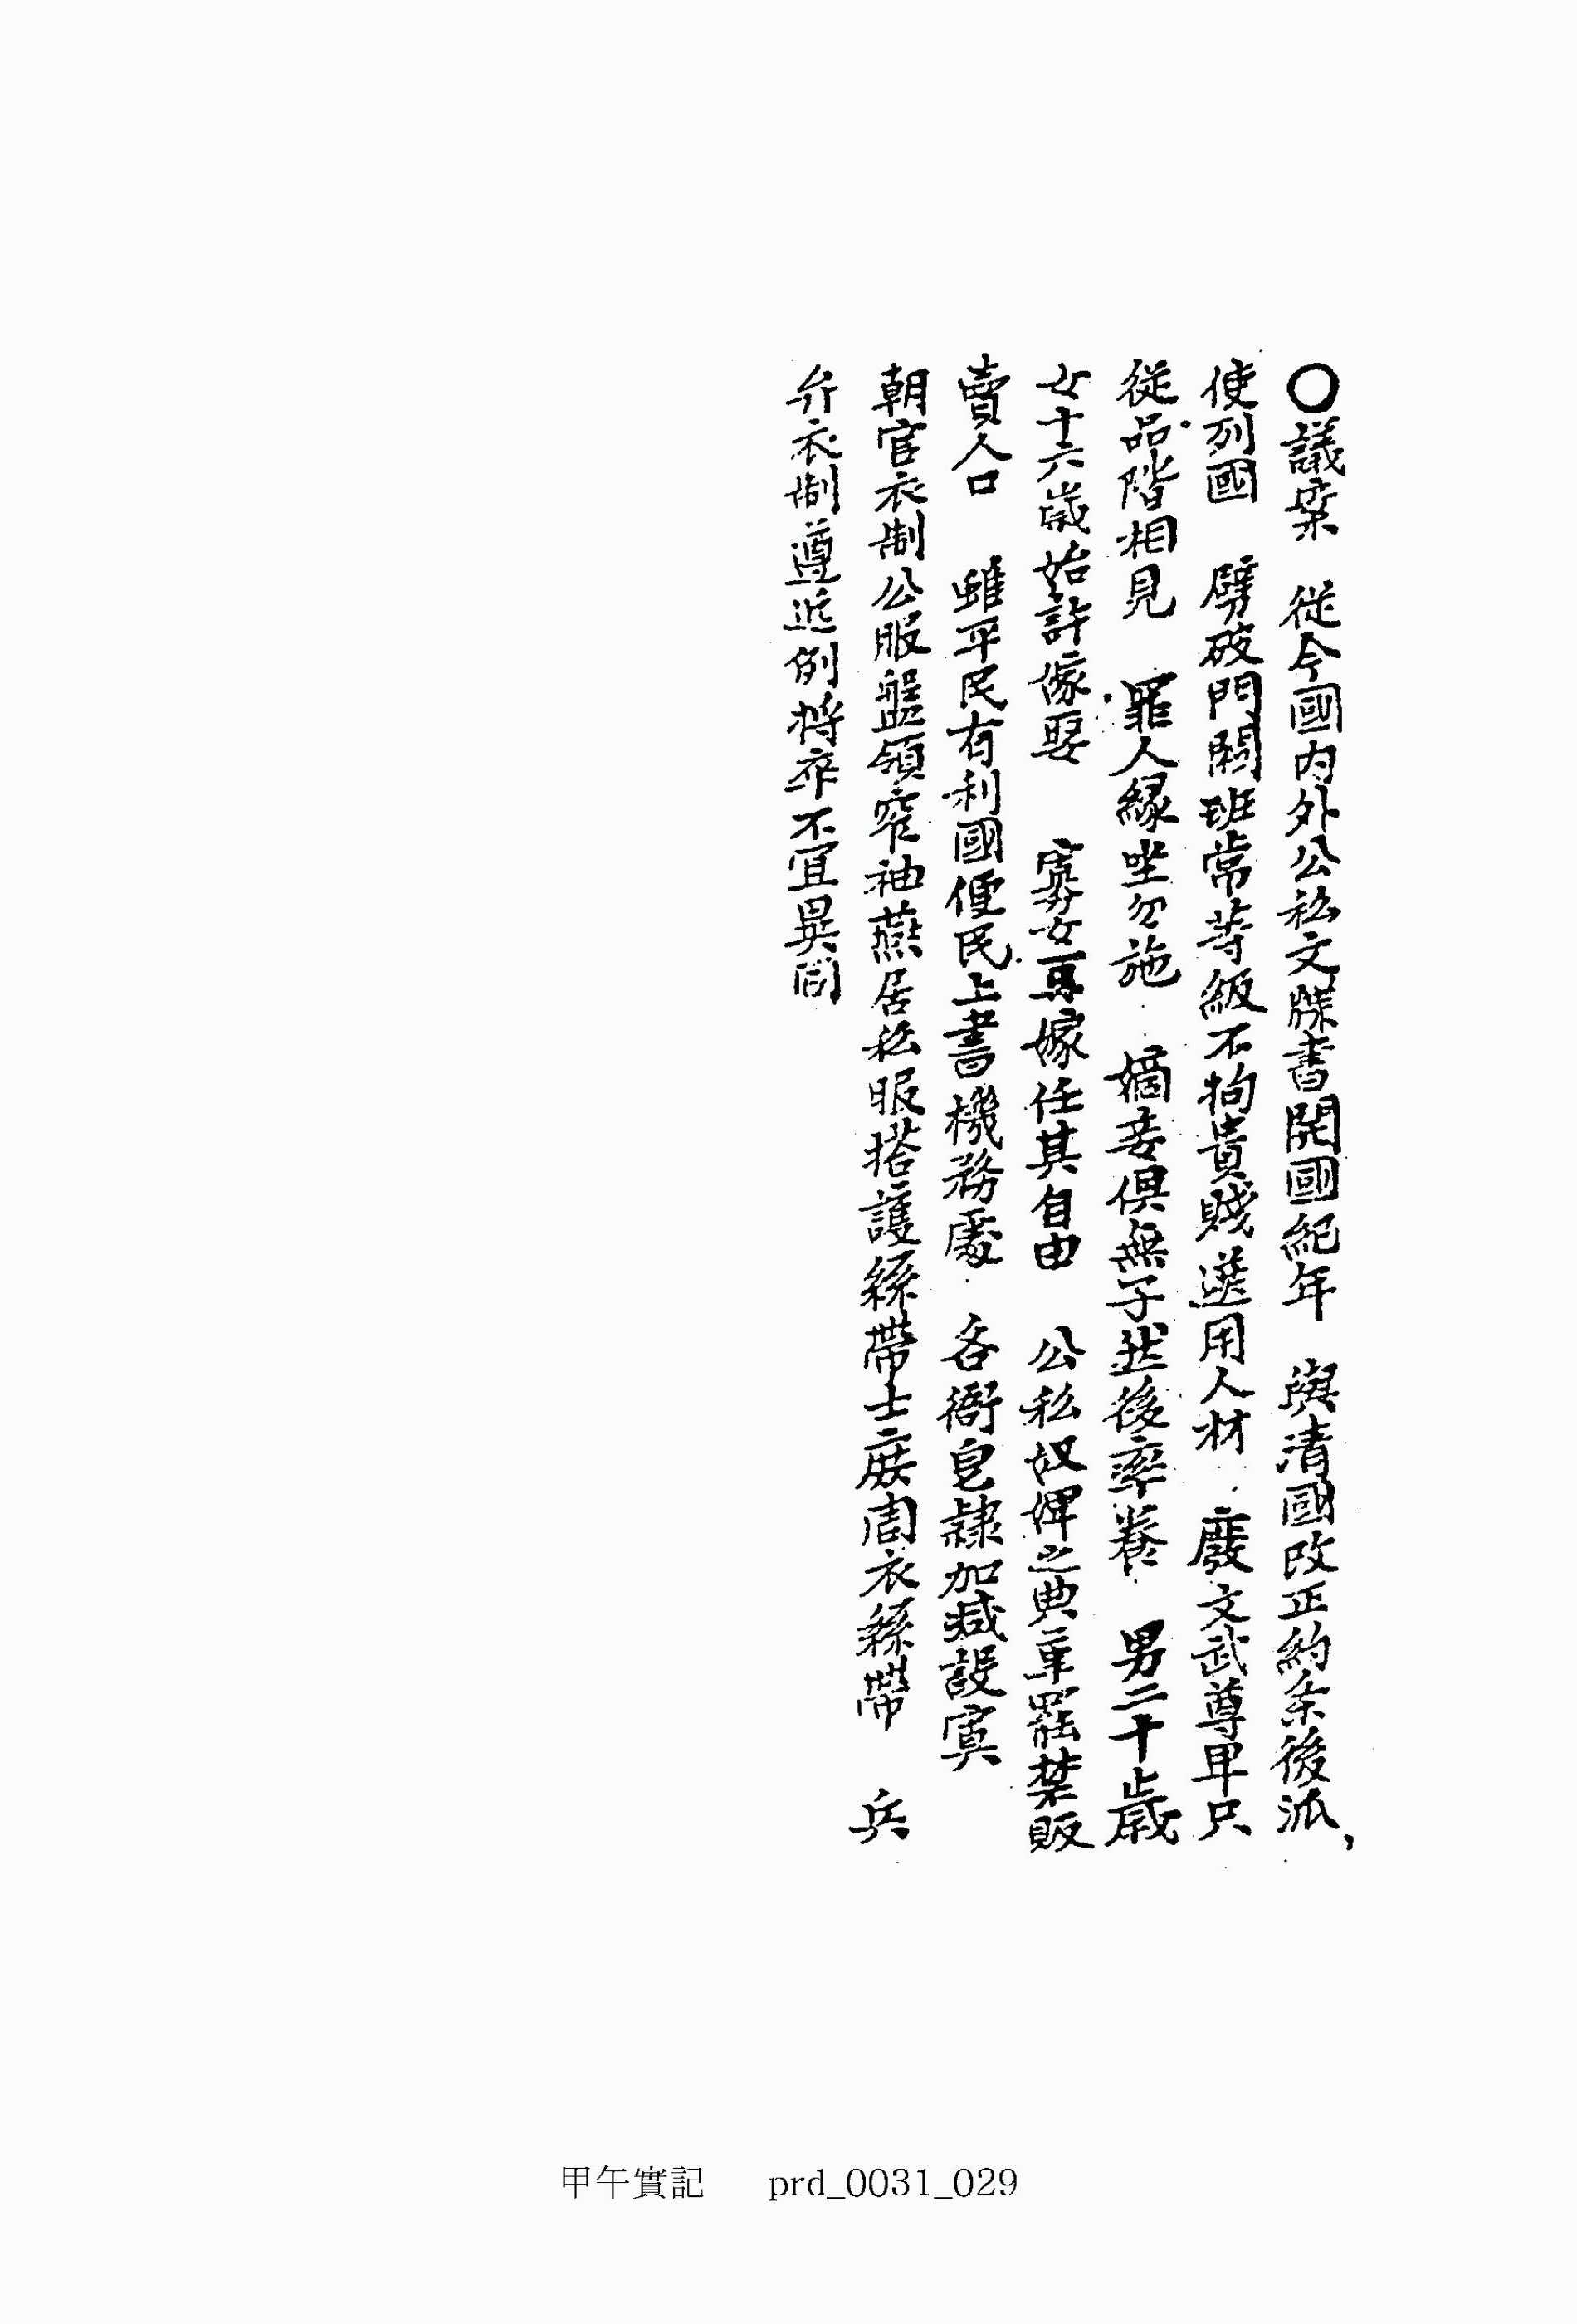 ○議案 從今國內外公私文牒書開國紀年 與清國改正約条後派
使列國 劈破門閥班常等級不拘貴賤選用人材 廢文武尊卑只
從品階相見 罪人緣坐勿施 嫡妾俱無子然後率養 男二十歲
女十六歲始許嫁娶 寡女再嫁任其自由 公私奴婢之典革罷禁販
賣人口 雖平民有利國便民上書機務處 各衙皂隷加減設寘
朝官衣制公服盤領窄袖燕居私服搭護絲帶士庶周衣絲帶 兵
弁衣制遵近例將卒不宜異同
甲午實記 prd_0031_029